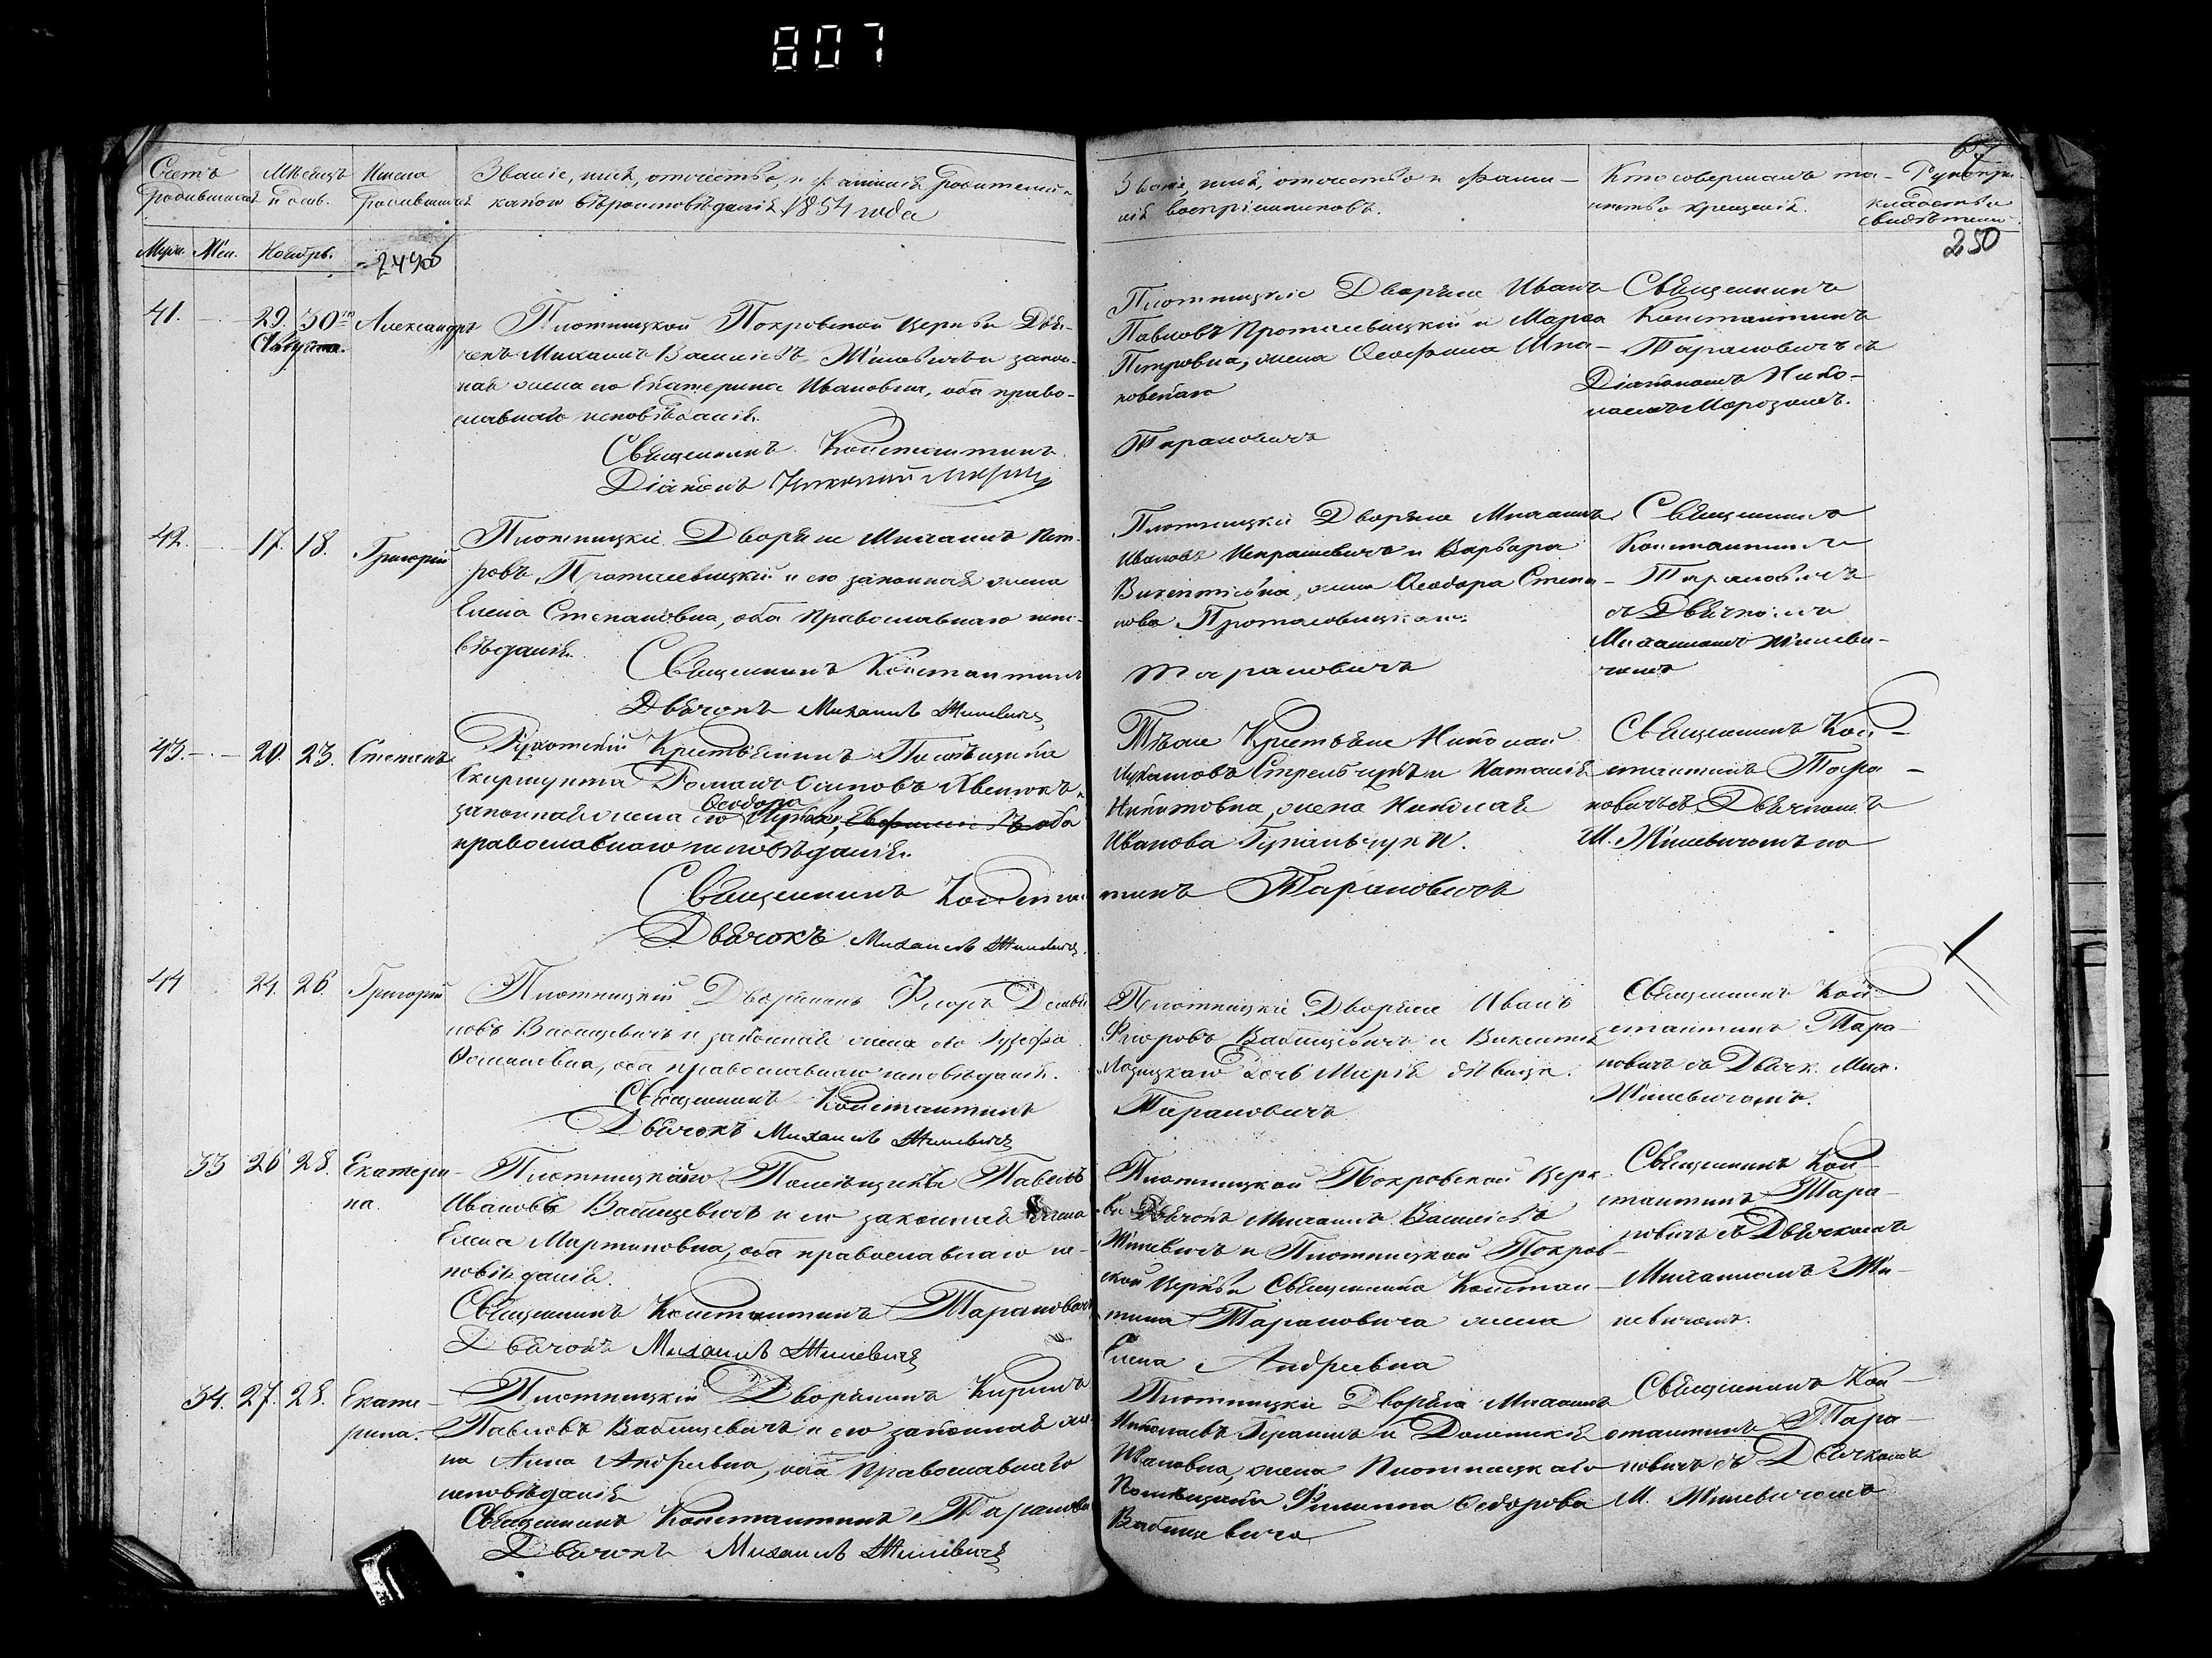 807
67
Счетъ Мѣсяцъ Имена Званіе, имя, отчество, и фамилія родителей и
родившихся родившихся какого вѣроисповѣданія 1854 года
Званіе, имя, отчество и фами-
лія воспріемниковъ.
Кто совершалъ та-
инство крещенія.
Рукопри-
кладство
свидѣтелей
Муж. Жен. Ноябрь.
250
41. 29. 30 Александръ Плотницкой Покровской Церкви Дья-
чекъ Михаилъ Васильевъ Жиневичъ и закон-
ная жена его Екатерина Ивановна, оба право-
славнаго исповѣданія.
Священникъ Константинъ
Діаконъ Николай
Плотницкіе Дворяне Иванъ
Павловъ Протасевицкій и Марѳа
Петровна, жена Ѳеофила
Тарановичъ
Священникъ
Константинъ
Тарановичъ съ
Діакономъ Нико-
лаемъ Морозомъ.
42. 17. 18. Григорій Плотницкіе Дворяне Михаилъ Пет-
ровъ Протасевицкій и его законная жена
Елена Степановна, оба Православнаго испо-
вѣданія.
Священникъ Константинъ
Дьячокъ Михаилъ Жиневичъ
Плотницкіе Дворяне Михаилъ
Ивановъ и Варвара
Викентіевна, жена Ѳеодора Степа-
нова Протасовицкаго
Тарановичъ
Священникъ
Константинъ
Тарановичъ
съ Дьячкомъ
Михаиломъ Жиневи-
чемъ
43. 20. 23. Степанъ Крестьянинъ Помѣщика
Скирмунта Романъ Осиповъ и
законная жена его Ѳеодора оба
православнаго исповѣданія.
Священникъ Конста
Дьячокъ Михаилъ Жиневичъ
Тѣже Крестьяне Николай
Стрельчукъ и Наталія
Никитовна, жена Николая
Иванова
нтинъ Тарановичъ
Священникъ Кон-
стантинъ Тара-
новичъ съ Дьячкомъ
М. Жиневичемъ
44 24. 26. Григорій Плотницкій Дворянинъ Флоръ Демья-
новъ Вабищевичъ и законная жена его Іузефа
Османовна, оба православнаго исповѣданія.
Священникъ Константинъ
Дьячокъ Михаилъ Жиневичъ
Плотницкіе Дворяне Иванъ
Флоровъ Вабищевичъ и Викентія
Лозицкаго дочь Марія дѣвица.
Тарановичъ
Священникъ Кон-
стантинъ Тара-
новичъ съ Дьячк. Мих.
Жиневичемъ.
33 26 28. Екатери- Плотницкаго Помѣщика Павелъ
на. Ивановъ Вабищевичъ и его законная жена
Елена Мартиновна, оба православнаго ис-
повѣданія.
Священникъ Константинъ Тарановичъ
Дьячокъ Михаилъ Жиневичъ
Плотницкой Покровской Церк-
ви Дьячокъ Михаилъ Васильевъ
Жиневичъ и Плотницкой Покров-
ской Церкви Священника Констан-
тина Тарановича жена
Елена Андреевна
Священникъ Кон-
стантинъ Тара-
новичъ съ Дьячкомъ
Михаиломъ Жи-
невичемъ.
34. 27. 28. Екате- Плотницкій Дворянинъ Кирилъ
рина. Павловъ Вабищевичъ и его законная же-
на Анна Андреевна, оба Православнаго
исповѣданія
Священникъ Константинъ Таранович
Дьячокъ Михаилъ Жиневичъ
Плотницкіе Дворяне Михаилъ
Николаевъ и Доминикія
Ивановна, жена Плотницкаго
Помѣщика Филиппа Ѳедорова
Вабищевича
Священникъ Кон-
стантинъ Тара-
новичъ съ Дьячкомъ
М. Жиневичемъ